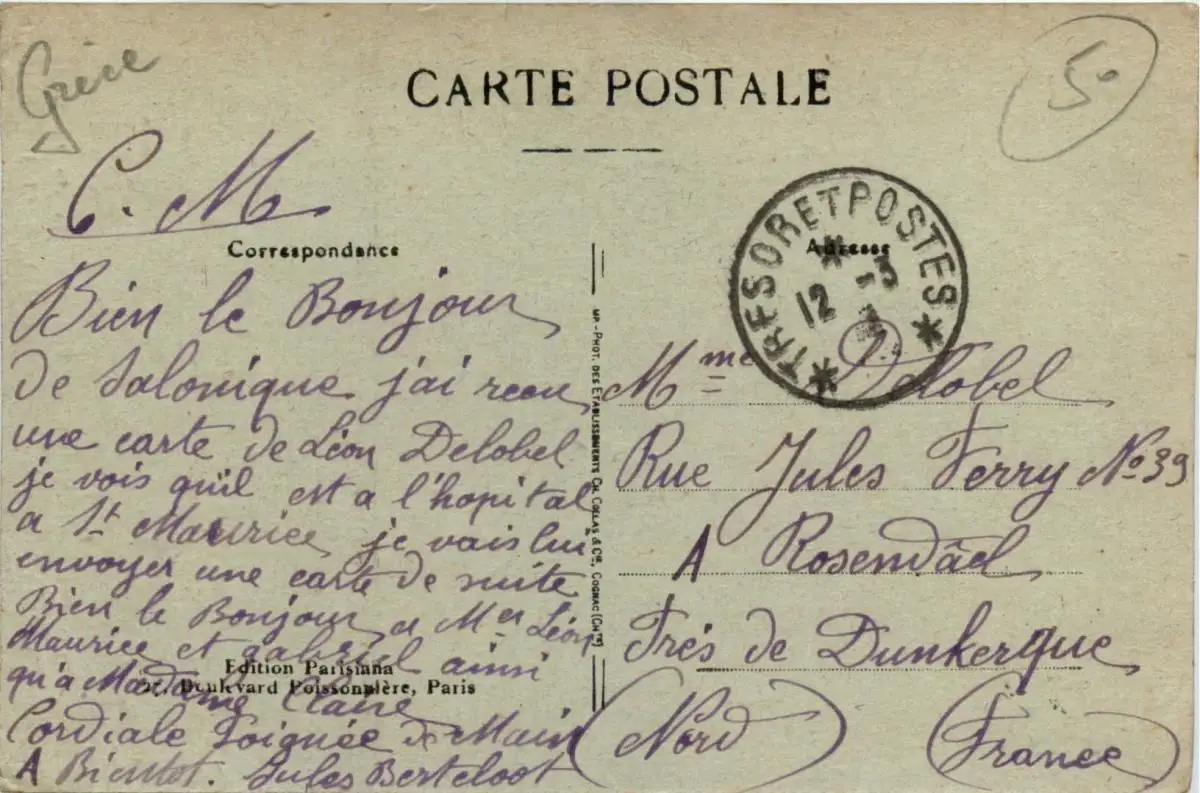 Grèce
CARTE POSTALE
50
C. M
Correspondance
Adresse
TRESOR ET POSTES
12 -3
Bien le Bonjour
de Salonique j'ai recu
une carte de Léon Delobel
je vois qu'il est a l'hopital
a St Maurice je vais lui
envoyer une carte de suite
Bien le Bonjour a Mer Léon
Maurice et gabriel ainsi
qu'à Madame Claire
Cordiale Poignée de Main
A Bientot. Jules Berteloot
Edition Parisiana
Boulevard Poissonnière, Paris
MP. - PHOT. DES ETABLISSEMENTS CH. COLLAS & Cie, COGNAC (Chte)
Mme Delobel
Rue Jules Ferry No 39
A Rosendâel
Trés de Dunkerque
(Nord) (France)